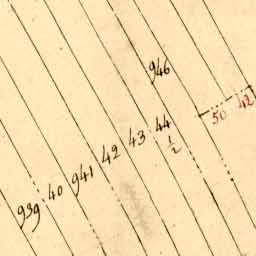 946
939 40 941 42 43 44 1/2
50 42